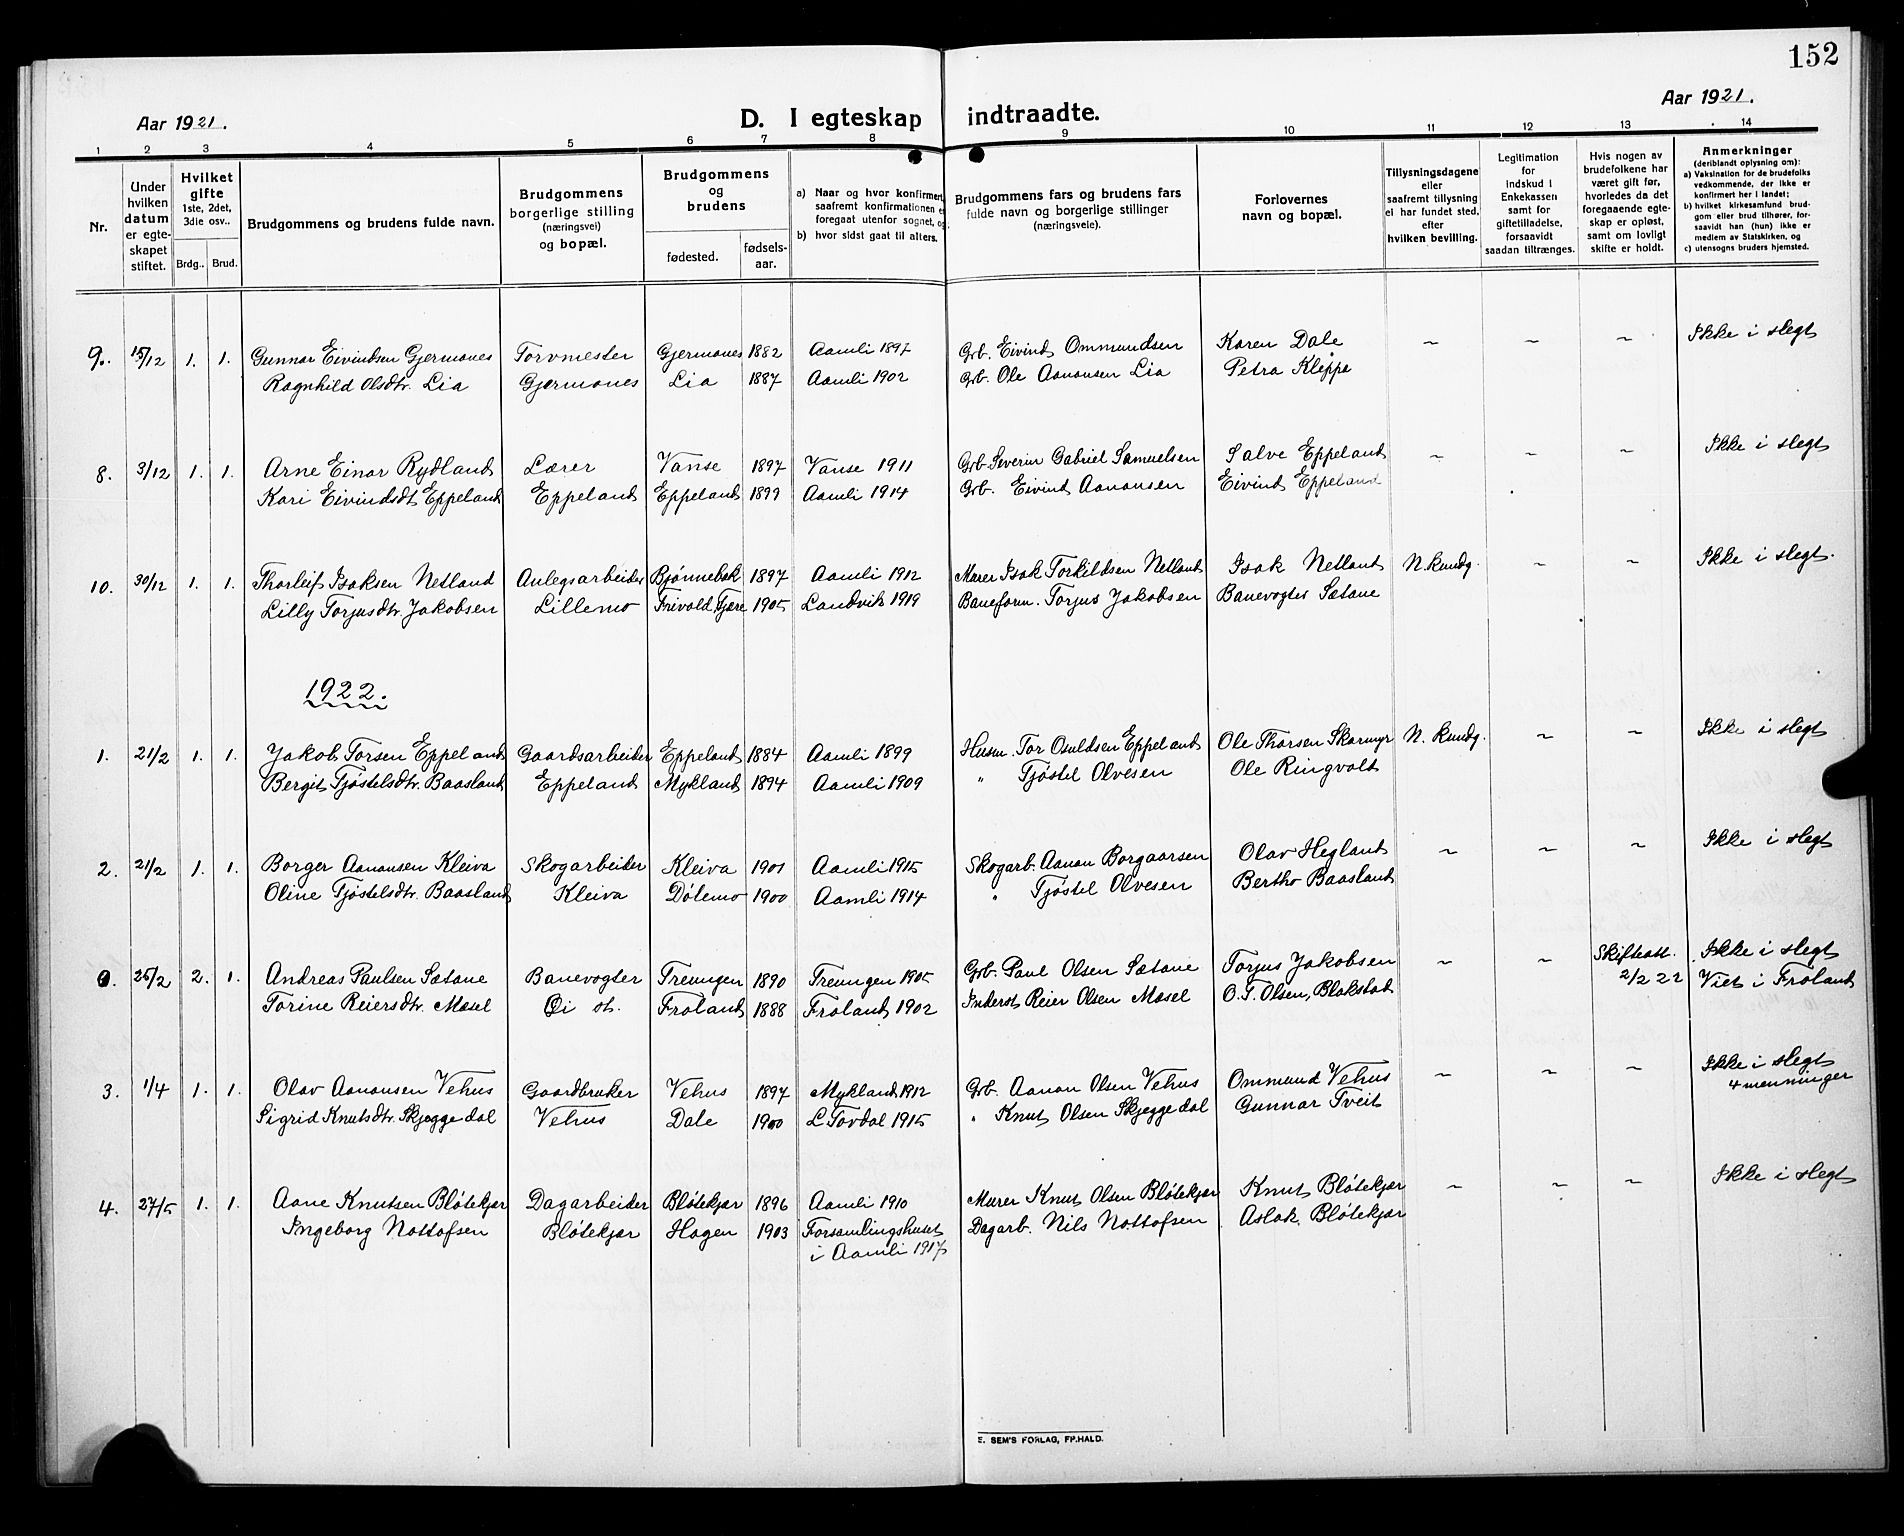 152
Aar 1921.
D. I egteskap indtraadte.
Aar 1921.
1 2 3 4 5 6 7 8 9 10 11 12 13 14
Nr.
Under hvilken datum er egteskapet stiftet.
Hvilket gifte 1ste, 2det, 3die osv..
Brdg.. Brud.
Brudgommens og brudens fulde navn.
Brudgommens borgerlige stilling (næringsvei) og bopæl.
Brudgommens og brudens
fødested. fødsels-aar.
a) Naar og hvor konfirmert, saafremt konfirmationen er foregaat utenfor sognet, og
b) hvor sidst gaat til alters.
Brudgommens fars og brudens fars fulde navn og borgerlige stillinger (næringsveie).
Forlovernes navn og bopæl.
Tillysningsdagene eller saafremt tillysning ei har fundet sted, efter hvilken bevilling.
Legitimation for indskud i Enkekassen samt for giftetilladelse, forsaavidt saadan tiltrænges.
Hvis nogen av brudefolkene har været gift før, hvorledes da det foregaaende egteskap er opløst, samt om lovligt skifte er holdt.
Anmerkninger (deriblandt oplysning om):
a) Vaksination for de brudefolks vedkommende, der ikke er konfirmert her i landet;
b) hvilket kirkesamfund brudgom eller brud tilhører, forsaavidt han (hun) ikke er medlem av Statskirken, og
c) utensogns bruders hjemsted.
9. 15/12 1. 1. Gunnar Eivindsen Gjermones Torvmester Gjermones 1882 Aamli 1897 Grb. Eivind Ommundsen Karen Dale ~ ~ ~ Ikke i slegt
Ragnhild Olsdtr. Lia Gjermones Lia 1887 Aamli 1902 Grb. Ole Aanonsen Lia Petra Kleppe
8. 3/12 1. 1. Arne Einar Rydland Lærer Vanse 1897 Vanse 1911 Grb. Severin Gabriel Samuelsen Salve Eppeland ~ ~ ~ Ikke i slegt
Kari Eivindsdt. Eppeland Eppeland Eppeland 1899 Aamli 1914 Grb. Eivind Aanonsen Eivind Eppeland
10. 30/12 1. 1. Thorleif Isaksen Netland Anlegsarbeider Bjønnebek 1897 Aamli 1912 Murer Isak Torkildsen Netland Isak Netland N. kundg. ~ ~ Ikke i slegt.
Lilly Torjusdtr. Jakobsen Lillemo Frivold, Fjære 1905 Landvik 1919 Baneform. Torjus Jakobsen Banevogter Sætane
1922.
1. 21/2 1. 1. Jakob Torsen Eppeland Gaardsarbeider Eppeland 1884 Aamli 1899 Husm. Tor Osuldsen Eppeland Ole Thorsen Skarmyr N. kundg. ~ ~ Ikke i slegt
Bergit Tjøstelsdtr. Baasland Eppeland Mykland 1894 Aamli 1909 " Tjøstel Olvesen Ole Ringvolt
2. 21/2 1. 1. Borger Aanonsen Kleiva Skogarbeider Kleiva 1901 Aamli 1915 Skogarb. Aanon Borgaarsen Olav Hegland ~ ~ ~ Ikke i slegt
Oline Tjøstelsdtr. Baasland Kleiva Dølemo 1900 Aamli 1914 " Tjøstel Olvesen Bertho Baasland
0. 25/2 2. 1. Andreas Paulsen Sætane Banevogter Treungen 1890 Treungen 1905 Grb. Paul Olsen Sætane Torjus Jakobsen ~ ~ Skifteatt. Ikke i slegt
Torine Reiersdtr. Mæsel Øi st. Froland 1888 Froland 1902 Inderst Reier Olsen Mæsel O. T. Olsen, Blakstad 2/2 22 Viet i Froland
3. 1/4 1. 1. Olav Aanonsen Vehus Gaardbruker Vehus 1897 Mykland 1912 Grb. Aanon Olsen Vehus Ommund Vehus ~ ~ ~ Ikke i slegt
4 menninger
Sigrid Knutsdtr. Skjeggedal Vehus Dale 1900 L. Tovdal 1915 " Knut Olsen Skjeggedal Gunnar Tveit
4. 27/5 1. 1. Aane Knutsen Bløtekjær Dagarbeider Bløtekjær 1896 Aamli 1910 Murer Knut Olsen Bløtekjær Knut Bløtekjær ~ ~ ~ Ikke i slegt
Ingeborg Nottofsen Bløtekjær Hagen 1903 Forsamlingshuset Dagarb. Nils Nottofsen Aslak Bløtekjær
i Aamli 1917
E. SEM'S FORLAG, FR.HALD.